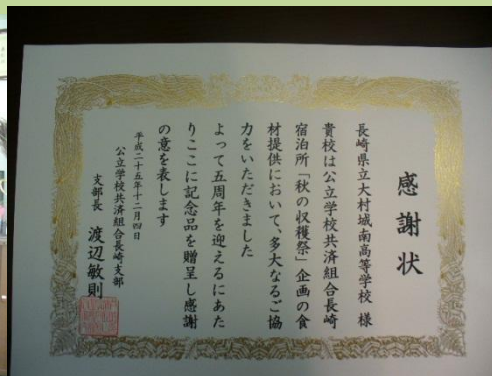 感謝状
長崎県立大村城南高等学校 様
貴校は公立学校共済組合長崎
宿泊所「秋の収穫祭」企画の食
材提供において、多大なるご協
力をいただきました
よって五周年を迎えるにあた
りここに記念品を贈呈し感謝
の意を表します
平成二十五年十二月四日
公立学校共済組合長崎支部
支部長 渡辺敏則